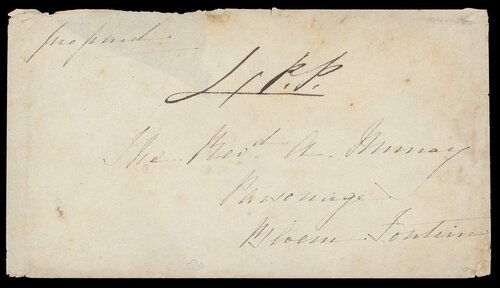 prepaid
4 P.P.
The Revd. A. Murray
Parsonage
Bloem Fontein